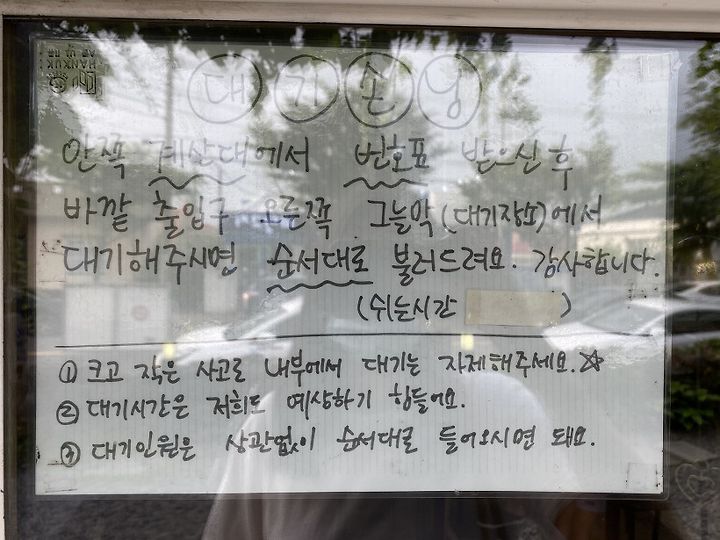 대기손님
안쪽 계산대에서 번호표 받으신 후
바깥 출입구 오른쪽 그늘막(대기장소)에서
대기해주시면 순서대로 불러드려요. 감사합니다.
(쉬는시간 )
① 크고 작은 사고로 내부에서 대기는 자제해주세요.☆
② 대기시간은 저희도 예상하기 힘들어요.
③ 대기인원은 상관없이 순서대로 들어오시면 돼요.